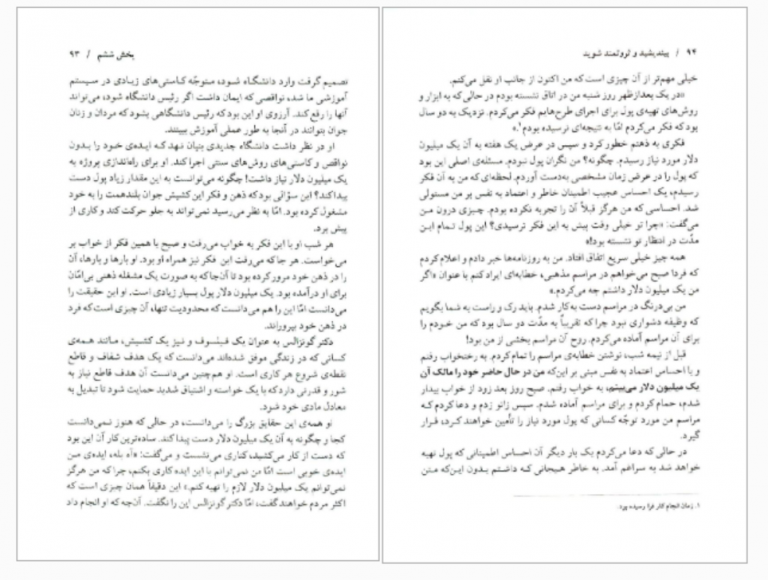 بخش ششم / ۹۳
تصمیم گرفت وارد دانشگاه شود، متوجّه کاستی‌های زیادی در سیستم
آموزشی ما شد، نواقصی که ایمان داشت اگر رئیس دانشگاه شود، می‌تواند
آنها را رفع کند. آرزوی او این بود که رئیس دانشگاهی بشود که مردان و زنان
جوان بتوانند در آنجا به طور عملی آموزش ببینند.
او در نظر داشت دانشگاه جدیدی بنیان نهد کـه ایـده‌ی خـود را بـدون
نواقص و کاستی‌های روش‌های سنتی اجرا کند. او برای راه‌اندازی پروژه به
یک میلیون دلار نیاز داشت! چگونه می‌توانست به این مقدار زیاد پول دست
پیدا کند؟ این سؤالی بود که ذهن و فکر این کشیش جوان بلندهمت را به خود
مشغول کرده بود. امّا به نظر می‌رسید نمی‌تواند به جلو حرکت کند و کاری از
پیش برد.
هر شب او با این فکر به خواب می‌رفت و صبح با همین فکر از خواب بر
می‌خواست. هر جا که می‌رفت این فکر نیز همراه او بود. او بارها و بارها، آن
را در ذهن خود مرور کرده بود تا آن‌جا که به صورت یک مشغله ذهنی بی‌امّان
برای او درآمده بود. یک میلیون دلار پول بسیار زیادی است. او این حقیقت را
می‌دانست امّا این را هم می‌دانست که محدودیت تنها، آن چیزی است که فرد
در ذهن خود بپروراند.
دکتر گونزالس به عنوان یک فیلسوف و نیز یک کشیش، مانند همه‌ی
کسانی که در زندگی موفق شده‌اند می‌دانست که یک هدف شفاف و قاطع
نقطه‌ی شروع هر کاری است. او هم‌چنین می‌دانست آن هدف قاطع نیاز به
شور و قدرتی دارد که با یک خواسته و اشتیاق شدید حمایت شود تا تبدیل به
معادل مادی خود شود.
او همه‌ی این حقایق بزرگ را می‌دانست، در حالی که هنوز نمی‌دانست
کجا و چگونه به آن یک میلیون دلار دست پیدا کند. ساده‌ترین کار آن این بود
که دست از کار می‌کشید، کناری می‌نشست و می‌گفت: «آه بله، ایده‌ی من
ایده‌ی خوبی است امّا من نمی‌توانم با این ایده کاری بکنم، چرا که من هرگز
نمی‌توانم یک میلیون دلار لازم را تهیه کنم.» این دقیقاً همان چیزی است که
اکثر مردم خواهند گفت، امّا دکتر گونزالس این را نگفت. آن‌چه که او انجام داد
۹۴ / بیندیشید و ثروتمند شوید
خیلی مهم‌تر از آن چیزی است که من اکنون از جانب او نقل می‌کنم.
«در یک بعدازظهر روز شنبه من در اتاق نشسته بودم در حالی که به ابزار و
روش‌های تهیه‌ی پول برای اجرای طرح‌هایم فکر می‌کردم. نزدیک به دو سال
بود که فکر می‌کردم امّا به نتیجه‌ای نرسیده بودم.»
فکری به ذهنم خطور کرد و سپس در عرض یک هفته به آن یک میلیون
دلار مورد نیاز رسیدم. چگونه؟ من نگران پول نبودم. مسئله‌ی اصلی این بود
که پول را در عرض زمان مشخصی به‌دست آوردم. لحظه‌ای که من به آن فکر
رسیدم، یک احساس عجیب اطمینان خاطر و اعتماد به نفس بر من مستولی
شد. احساسی که من هرگز قبلاً آن را تجربه نکرده بودم. چیزی درون من
می‌گفت: «چرا تو خیلی وقت پیش به این فکر نرسیدی؟ این پول تمام این
مدّت در انتظار تو نشسته بود!»
همه چیز خیلی سریع اتفاق افتاد. من به روزنامه‌ها خبر دادم و اعلام کردم
که فردا صبح می‌خواهم در مراسم مذهبی، خطابه‌ای ایراد کنم با عنوان «اگر
من یک میلیون دلار داشتم چه می‌کردم.»
من بی‌درنگ در مراسم دست به‌کار شدم. باید رک و راست به شما بگویم
که وظیفه دشواری نبود چرا که تقریباً به مدّت دو سال بود که من خـودم را
برای آن مراسم آماده می‌کردم. روح آن مراسم بخشی از من بود!
قبل از نیمه شب، نوشتن خطابه‌ی مراسم را تمام کردم. به رختخواب رفتم
و با احساس اعتماد به نفس مبنی بر این‌که من در حال حاضر خود را مالک آن
یک میلیون دلار می‌بینم، به خواب رفتم. صبح روز بعد زود از خواب بیدار
شدم، حمام کردم و برای مراسم آماده شدم. سپس زانو زدم و دعا کردم کـه
مراسم من مورد توجّه کسانی که پول مورد نیاز را تأمین خواهند کـرد، قـرار
گیرد.
در حالی که دعا می‌کردم یک بار دیگر آن احساس اطمینانی که پول تهیه
خواهد شد به سراغم آمد. به خاطر هیجانی کـه داشـتم بـدون این‌که متن
۱. زمان انجام کار فرا رسیده بود.